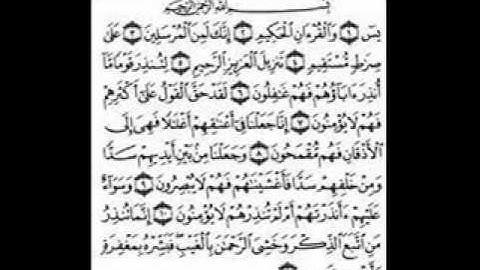 بِسْمِ اللَّهِ الرَّحْمَٰنِ الرَّحِيمِ
يسٓ ١ وَالْقُرْءَانِ الْحَكِيمِ ٢ إِنَّكَ لَمِنَ الْمُرْسَلِينَ ٣ عَلَىٰ
صِرَٰطٍ مُّسْتَقِيمٍ ٤ تَنزِيلَ الْعَزِيزِ الرَّحِيمِ ٥ لِتُنذِرَ قَوْمًا مَّا
أُنذِرَ ءَابَآؤُهُمْ فَهُمْ غَٰفِلُونَ ٦ لَقَدْ حَقَّ الْقَوْلُ عَلَىٰٓ أَكْثَرِهِمْ
فَهُمْ لَا يُؤْمِنُونَ ٧ إِنَّا جَعَلْنَا فِىٓ أَعْنَٰقِهِمْ أَغْلَٰلًا فَهِىَ إِلَى
الْأَذْقَانِ فَهُم مُّقْمَحُونَ ٨ وَجَعَلْنَا مِنۢ بَيْنِ أَيْدِيهِمْ سَدًّا
وَمِنْ خَلْفِهِمْ سَدًّا فَأَغْشَيْنَٰهُمْ فَهُمْ لَا يُبْصِرُونَ ٩ وَسَوَآءٌ
عَلَيْهِمْ ءَأَنذَرْتَهُمْ أَمْ لَمْ تُنذِرْهُمْ لَا يُؤْمِنُونَ ١٠ إِنَّمَا تُنذِرُ
مَنِ اتَّبَعَ الذِّكْرَ وَخَشِىَ الرَّحْمَٰنَ بِالْغَيْبِ فَبَشِّرْهُ بِمَغْفِرَةٍ